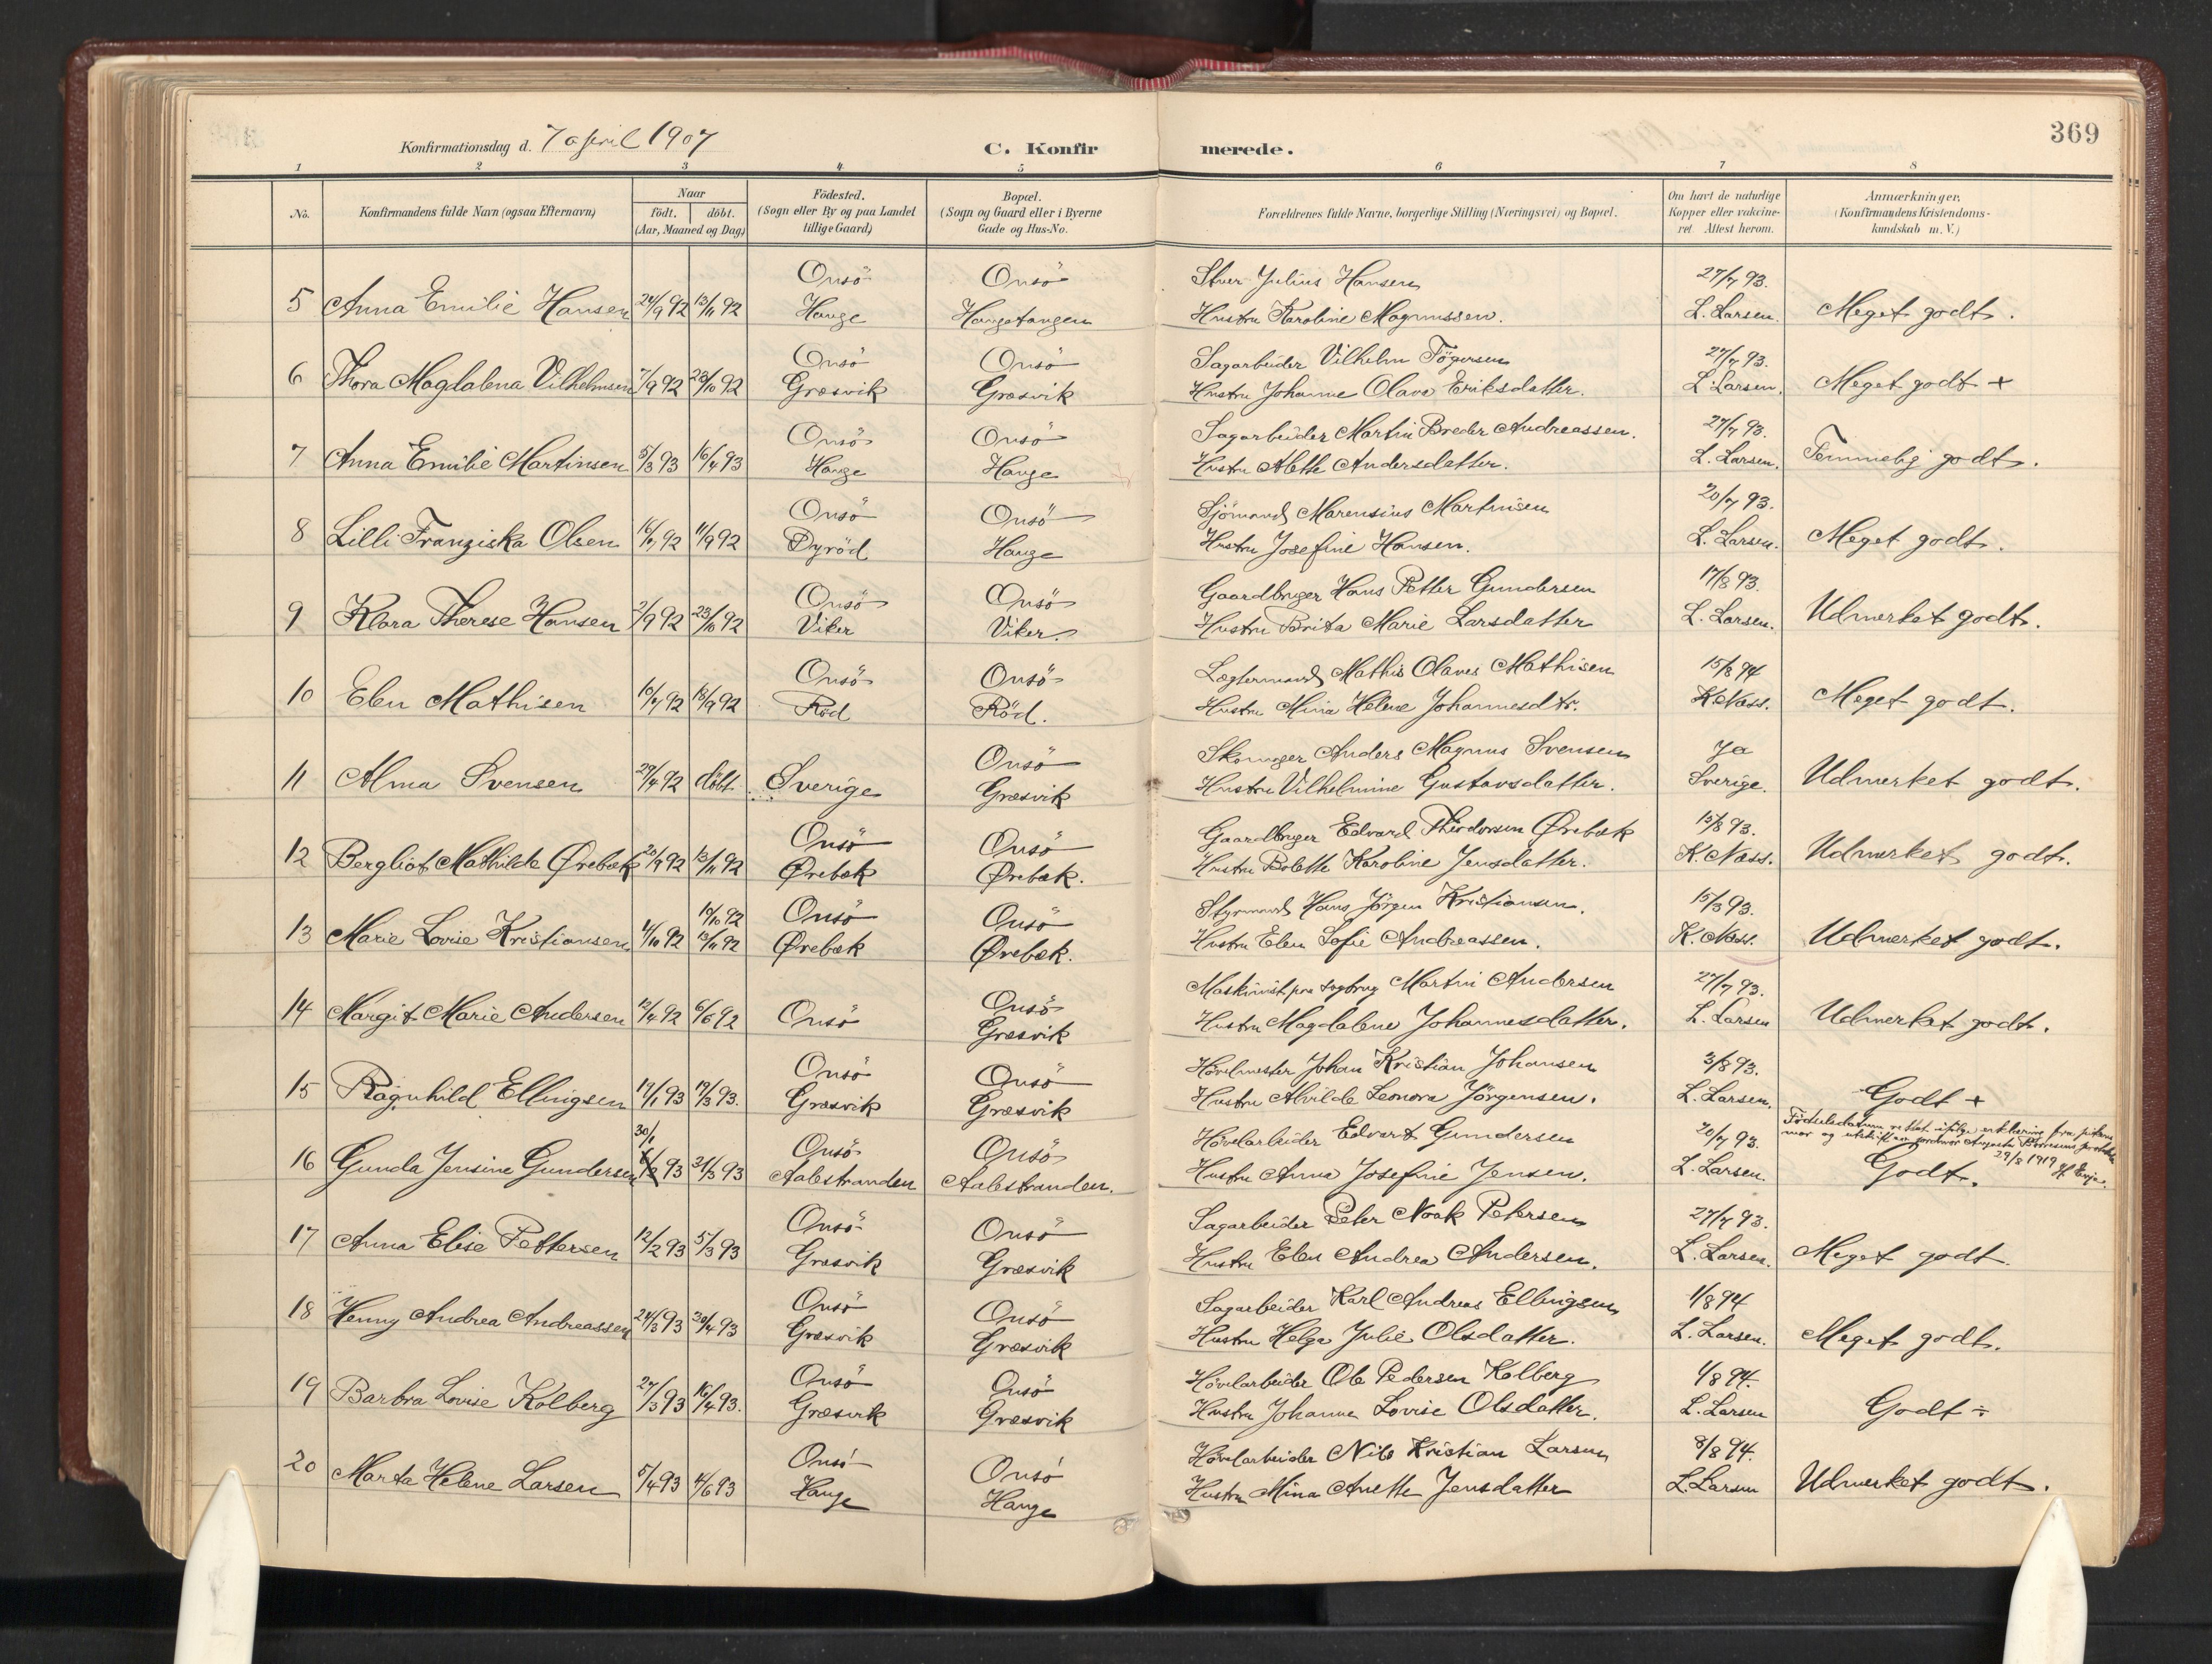 Konfirmationsdag d. 7 april 1907
C. Konfirmerede.
369
1 2 3 4 5 6 7 8
No.
Konfirmandens fulde Navn (ogsaa Efternavn)
Naar
födt. döbt.
(Aar, Maaned og Dag)
Födested.
(Sogn eller By og paa Landet
tillige Gaard)
Bopæl.
(Sogn og Gaard eller i Byerne
Gade og Hus-No.
Forældrenes fulde Navne, borgerlige Stilling (Næringsvei) og Bopæl.
Om havt de naturlige
Kopper eller vakcine-
ret Attest herom.
Anmærkninger,
(Konfirmandens Kristendoms-
kundskab m. V.)
Onsö Onsö Julius Hansen 27/7 93.
5 Anna Emilie Hansen 24/9 92 13/11 92 Hauge Haugetangen Hustru Karoline Magnussen. L. Larsen. Meget godt.
Onsö Onsö Sagarbeider Vilhelm 27/7 93.
6 Thora Magdalena Vilhelmsen 7/9 92 23/10 92 Græsvik Græsvik Hustru Johanne Olava Eriksdatter. L. Larsen. Meget godt +
Onsö Onsö Sagarbeider Martin Breder Andreassen. 27/7 93.
7 Anna Emilie Martinsen 5/3 93 16/4 93 Hauge Hauge Hustru Alette Andersdatter. L. Larsen. Temmelig godt.
Onsö Onsö Sjömand Marensius Martinisen 20/7 93.
8 Lilli Franziska Olsen 16/7 92 11/9 92 Dyröd Hauge Hustru Josefine Hansen. L. Larsen. Meget godt.
Onsö Onsö Gaardbruger Hans Petter Gundersen 17/8 93.
9 Klara Therese Hansen 2/9 92 23/10 92 Viker Viker. Hustru Berita Marie Larsdatter L. Larsen. Udmerket godt.
Onsö Onsö Lægtermand Mathis Olaves Mathisen 15/8 94
10 Elen Mathisen 10/7 92 18/9 92 Röd Röd. Hustru Mina Helene Johannesdtr. K. Næss. Meget godt.
Onsö Skomager Anders Magnus Svensen Ja
11 Alma Svensen 29/4 92 döbt Sverige Græsvik Hustru Vilhelmine Gustavsdatter. Sverige. Udmerket godt.
Onsö Onsö Gaardbruger Edvard Theodorsen Ørebæk 15/8 93.
12 Bergliot Mathilde Ørebæk 20/9 92 13/11 92 Ørebæk Ørebæk. Hustru Bolette Karoline Jensdatter. K. Næss. Udmerket godt.
10/10 92 Onsö Onsö Styrmand Hans Jörgen Kristiansen. 15/3 93.
13 Marie Lovise Kristiansen 4/10 92 13/11 92 Ørebæk Ørebæk. Hustru Elen Sofie Andreassen. K. Næss. Udmerket godt.
Onsö Maskinist paa sagbrug Martin Andersen 27/7 93.
14 Margit Marie Andersen 12/4 92 6/6 92 Onsö Græsvik Hustru Magdalene Johannesdatter. L. Larsen Udmerket godt.
Onsö Onsö Hövelmester Johan Kristian Johansen 3/8 93.
15 Ragnhild Ellingsen 19/1 93 19/3 93. Græsvik Græsvik Hustru Alvilde Leonora Jörgensen. L. Larsen. Godt +
30/1 Onsö Onsö Hövelarbeider Edvart Gundersen 20/7 93. Födselsdatum rettet ifölge erklæring fra pikens
mor og utskrift av jordmor Augusta protokol
29/8 1919
16 Gunda Jensine Gundersen 6/2 93 31/3 93 Aalestranden Aalestranden. Hustru Anna Josefine Jensen. L. Larsen. Godt.
Onsö Onsö Sagarbeider Peter Noak Petersen 27/7 93.
17 Anna Elise Pettersen 12/2 93 5/3 93 Græsvik Græsvik Hustru Elen Andrea Andersen. L. Larsen. Meget godt
Onsö Onsö Sagarbeider Karl Andreas Ellingsen 1/8 94
18 Henny Andrea Andreassen 24/3 93 30/4 93 Græsvik Græsvik Hustru Helga Julie Olsdatter. L. Larsen. Meget godt.
Onsö Onsö Hövelarbeider Ole Pedersen Kolberg 1/8 94.
19 Barbra Lovise Kolberg 27/3 93 16/4 93. Græsvik Græsvik Hustru Johanne Lovise Olsdatter. L. Larsen Godt ÷
Onsö Onsö Hövelarbeider Nils Kristian Larsen 8/8 94.
20 Marta Helene Larsen 5/4 93 4/6 93 Hauge Hauge Hustru Mina Anette Jensdatter L. Larsen Udmerket godt.